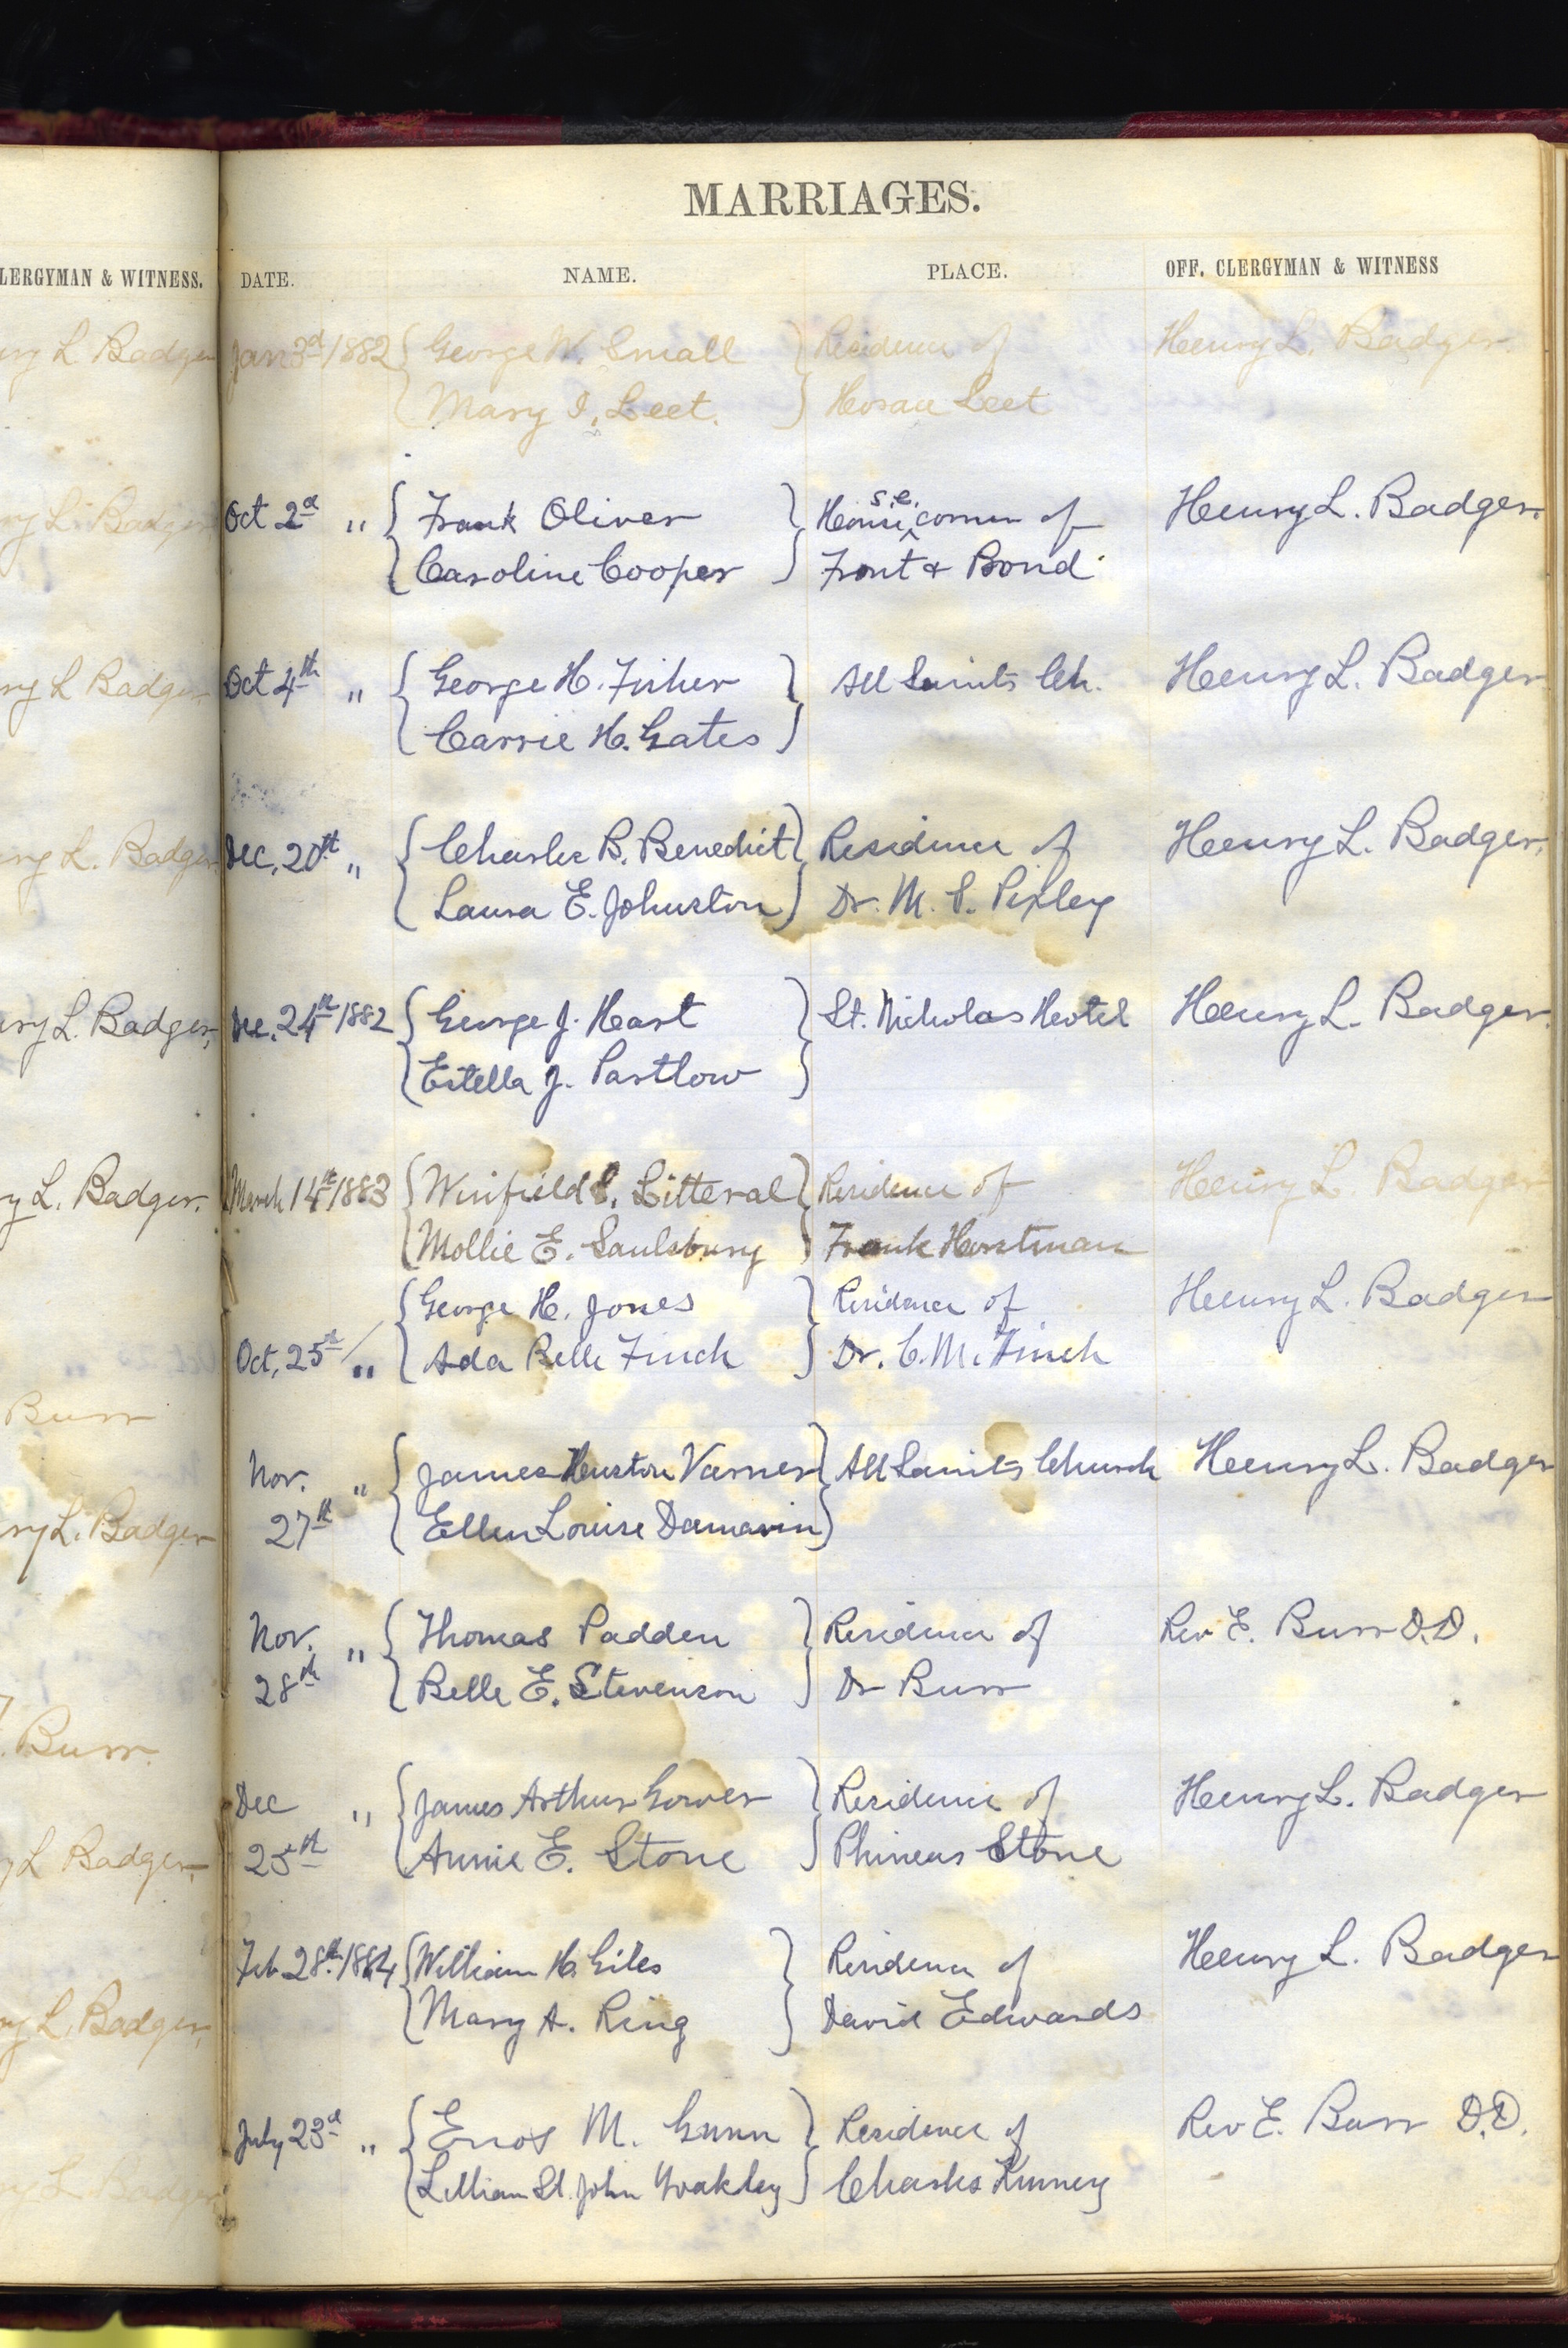 MARRIAGES.
LERGYMAN & WITNESS. DATE. NAME. PLACE. OFF. CLERGYMAN & WITNESS
ry L Badger Jan 3d 1882 { George W. Small } Residence of Henry L. Badger
{ Mary I. Leet. } Horace Leet
ry L. Badger Oct 2d " { Frank Oliver } House s.e. corner of Henry L. Badger.
{ Caroline Cooper } Front & Bond
ry L Badger Oct 4th " { George H. Fisher } All Saints Ch. Henry L. Badger
{ Carrie H. Gates }
ry L. Badger Dec. 20th " { Charles B. Benedict } Residence of Henry L. Badger.
{ Laura E. Johnston } Dr. M. S. Pixley
ry L. Badger, Dec. 24th 1882 { George J. Hart } St. Nicholas Hotel Henry L. Badger.
{ Estella J. Partlow }
ry L. Badger. March 14th 1883 { Winfield S. Litteral } Residence of Henry L Badger
{ Mollie E. Saulsbury } Frank Horstman
{ George H. Jones } Residence of Henry L. Badger
Oct. 25th " { Ada Belle Finch } Dr. C. M. Finch
Burr
Nov. " { James Huston Varner } All Saints Church Henry L. Badger
ry L. Badger 27th { Ellen Louise Damarin }
Nov. " { Thomas Padden } Residence of Rev E. Burr D.D.
28th { Belle E. Stevenson } Dr Burr
. Burr.
Dec " { James Arthur Gower } Residence of Henry L. Badger
y L Badger, 25th { Annie E. Stone } Phineas Stone
Feb 28th 1884 { William H. Giles } Residence of Henry L. Badger
ry L. Badger, { Mary A. Ring } David Edwards
July 23d " { Enos M. Gunn } Residence of Rev E. Burr D.D.
L Badger { Lillian St. John Yoakley } Charles Kinney